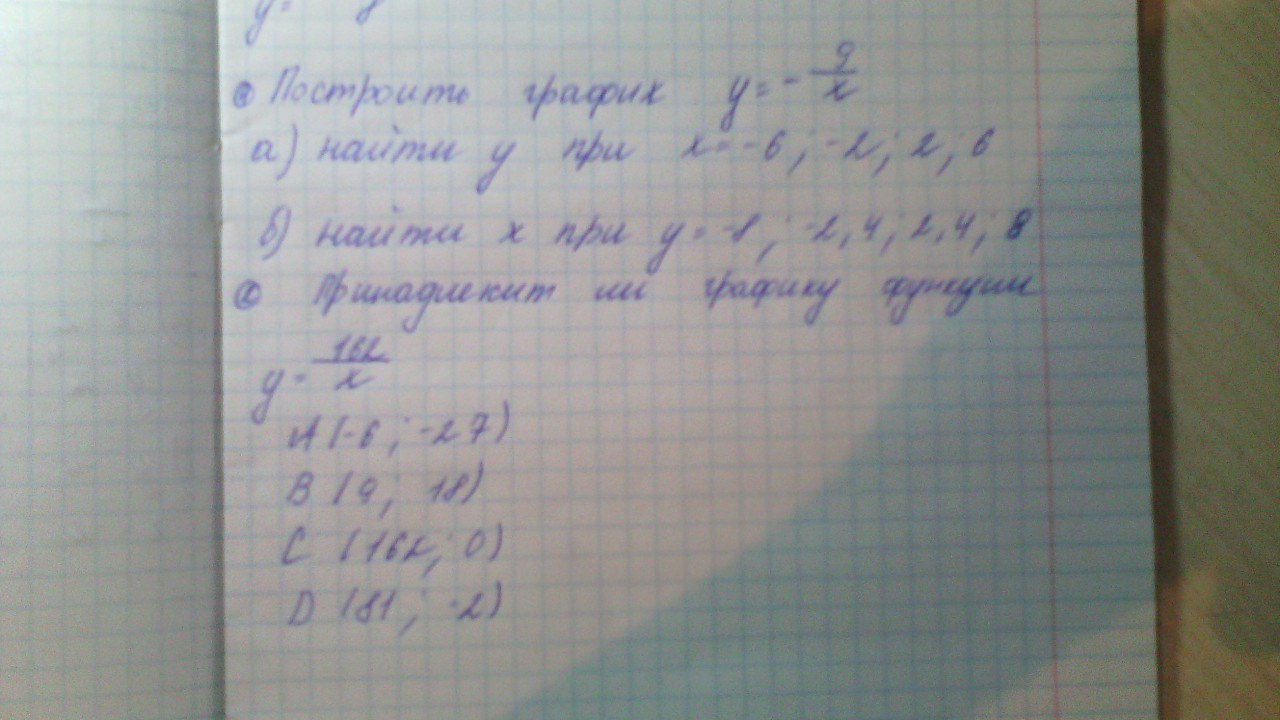 Построить график y = - 9/x
а) найти y при x = -6 ; -2 ; 2 ; 6
б) найти x при y = -8 ; -2,4 ; 2,4 ; 8
Принадлежит ли графику функции
y = 162/x
A (-6 ; -27)
B (9 ; 18)
C (162 ; 0)
D (81 ; -2)